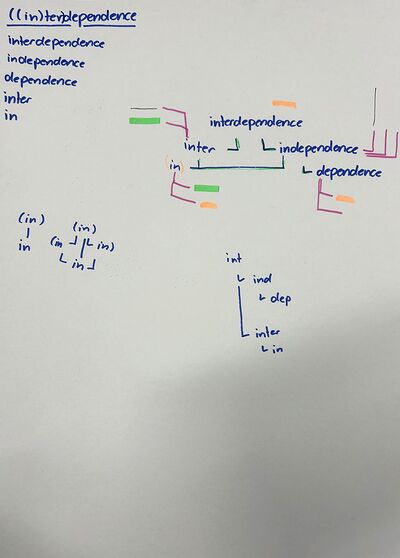 ((in)ter)dependence
interdependence
independence
dependence
inter
in
interdependence
inter independence
(in) dependence
(in)
in
(in)
(in in)
in
int
ind
dep
inter
in